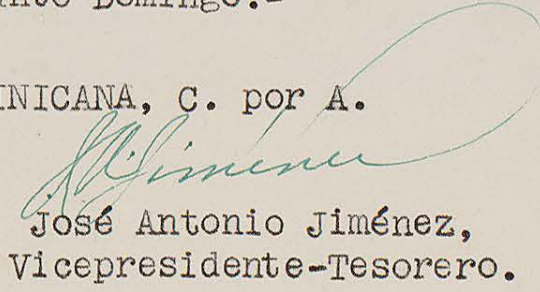 Domingo.-
INICANA, C. por A.
J.A. Jiménez
José Antonio Jiménez,
Vicepresidente-Tesorero.